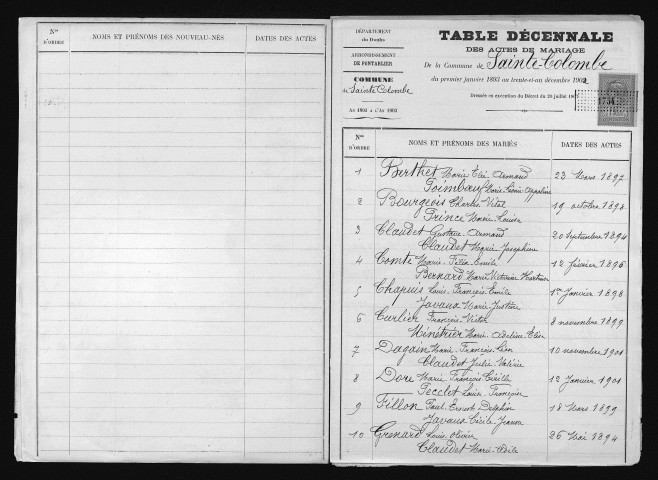 Nos
D'ORDRE
NOMS ET PRÉNOMS DES NOUVEAU-NÉS
DATES DES ACTES
DÉPARTEMENT
du Doubs
ARRONDISSEMENT
DE PONTARLIER
COMMUNE
de Sainte Colombe
AN 1893 A L'AN 1903
TABLE DÉCENNALE
DES ACTES DE MARIAGE
De la Commune de Sainte-Colombe
du premier janvier 1893 au trente-et-un décembre 1902
Dressée en exécution du Décret du 20 juillet
Nos
D'ORDRE
NOMS ET PRÉNOMS DES MARIÉS
DATES DES ACTES
1 Berthet Marie Élie Armand 23 Mars 1897
Poimbœuf Marie Léonie Appoline
2 Bourgeois Charles Vital 19 octobre 1898
Prince Marie Louise
3 Claudet Gustave Armand 20 Septembre 1894
Claudet Marie Joséphine
4 Comte Marie Félix Emile 12 février 1896
Bernard Marie Victorine
5 Chapuis Louis François Emile 1er Janvier 1898
Javaux Marie Justine
6 Curlier François Victor 8 novembre 1899
Ménétrier Marie Adeline Élise
7 Dagoin Marie François Léon 10 novembre 1901
Claudet Julie Valérie
8 Dore Marie François Cyrille 12 Janvier 1901
Peclet Louise Françoise
9 Fillon Paul Ernest Delphin 18 Mars 1899
Javaux Cécile Jeanne
10 Grenard Louis Olivier 26 Mai 1894
Claudet Marie Odile